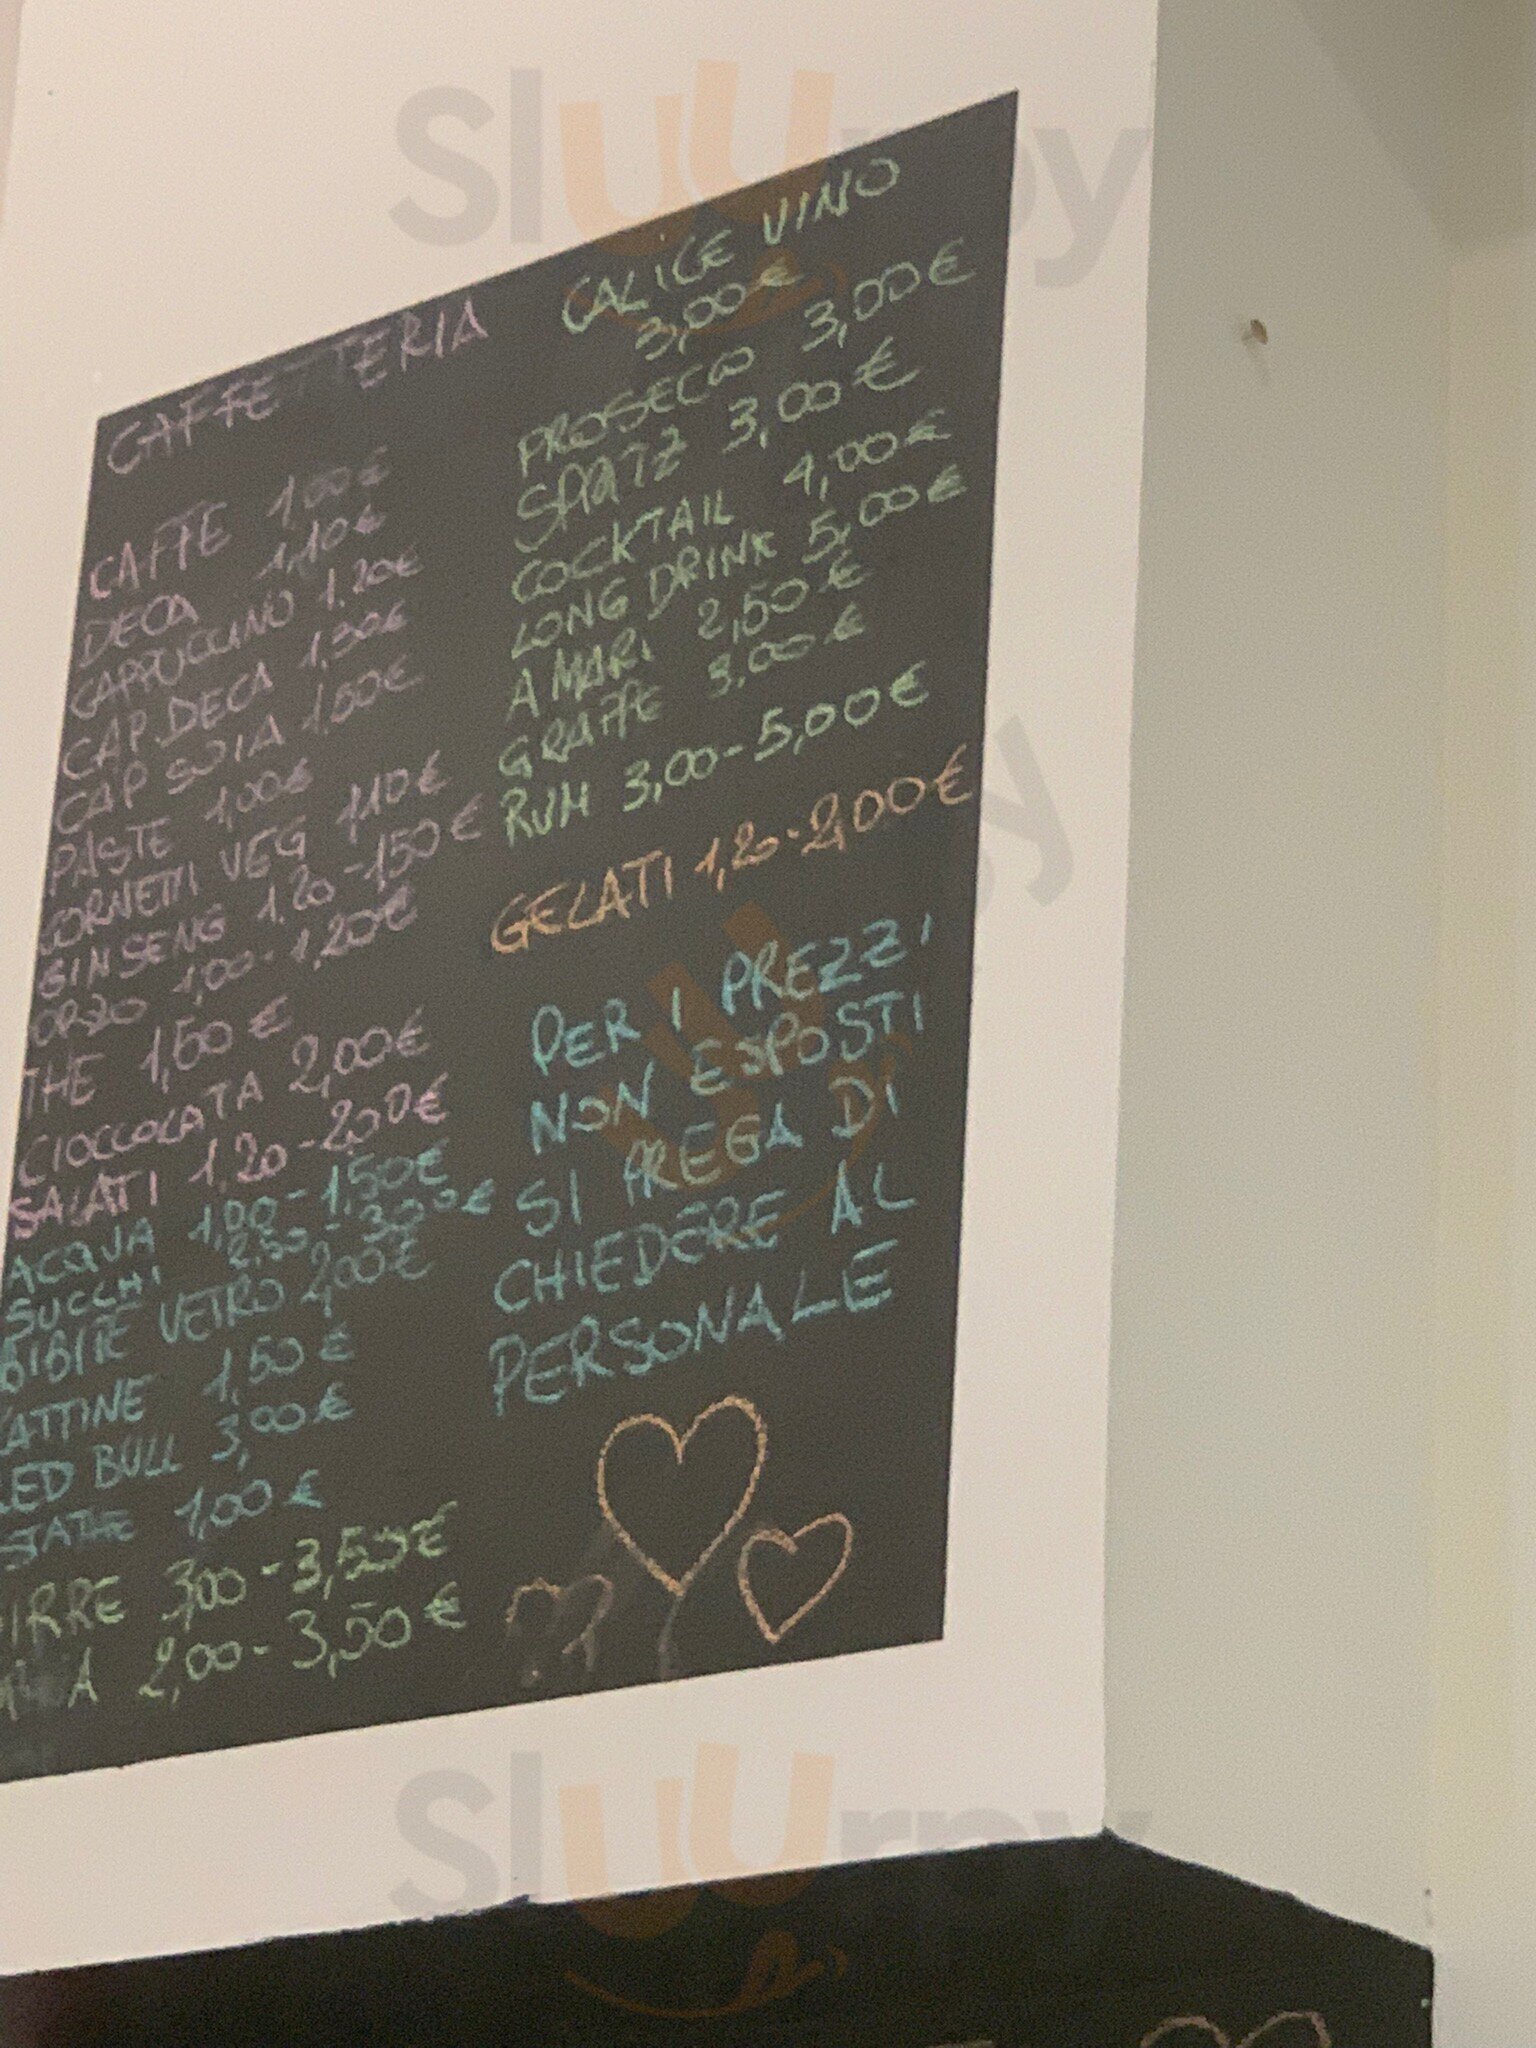 Sluurpy
CAFFETTERIA
CAFFE 1,00€
DECA 1,10€
CAPPUCCINO 1.20€
CAP. DECA 1,30€
CAP SOIA 1,50€
PASTE 1,00€
CORNETTI VEG 1,10€
GINSENG 1.20-1,50€
ORZO 1,00-1,20€
THE 1,50€
CIOCCOLATA 2,00€
SALATI 1,20-2,00€
ACQUA 1,00-1,50€
SUCCHI 2,50-3,00€
BIBITE VETRO 2,00€
LATTINE 1,50€
RED BULL 3,00€
STATHE 1,00€
BIRRE 3,00-3,50€
2,00-3,50€
CALICE VINO
3,00€
PROSECCO 3,00€
SPRITZ 3,00€
COCKTAIL 4,00€
LONG DRINK 5,00€
AMARI 2,50€
GRAPPE 3,00€
RUM 3,00-5,00€
GELATI 1,20-2,00€
PER I PREZZI
NON ESPOSTI
SI PREGA DI
CHIEDERE AL
PERSONALE
Sluurpy